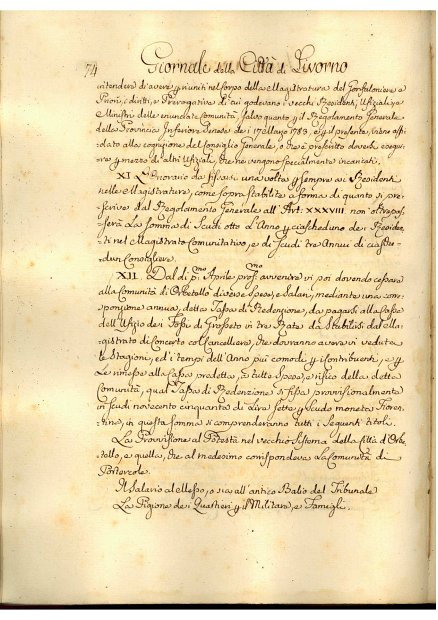 74 Giornale della Città di Livorno
intendersi avere, e riuniti nel Corpo della Magistratura del Gonfaloniere e
Priori, i diritti, e Prerogative di cui godevano i vecchi Residenti, Ufiziali, e
Ministri delle enunciate Comunità, salvo quanto il Regolamento Generale
della Provincia Inferiore Senese de i 17 Marzo 1783, e il presente,
dato alla cognizione del Consiglio Generale, o che è prescritto doversi esegui-
re per mezzo di altri Ufiziali, che ne vengono specialmente incaricati.
XI. L'Onorario da fissarsi una volta per sempre ai Residenti
nelle Magistrature, come sopra stabilite a forma di quanto si pre-
scrive dal Regolamento Generale all' Art. XXXVIII. non oltrepas-
serà la somma di Scudi otto l'Anno per ciascheduno de i Residen-
ti nel Magistrato Comunitativo, e di Scudi tre Annui di ciasche-
dun Consigliere.
XII. Dal dì p.mo Aprile pross.mo avvenire in poi dovendo cessare
alla Comunità di Orbetello diverse spese, e Salari, mediante una com-
posizione annua, detta Tassa di Redenzione, da pagarsi alla Cassa
dell' Ufizio de i Fossi di Grosseto in tre Rate da stabilirsi dal Ma-
gistrato di Concerto col Cancelliere, che dovranno avere in veduta
le Stagioni, ed i tempi dell' Anno più comodi per i Contribuenti, e per
le rimesse alla Cassa predetta, a tutte spese, e risico della detta
Comunità, qual Tassa di Redenzione si fissa provvisionalmente
in scudi novecento cinquanta di Lire sette per Scudo moneta Fioren-
tina, in questa somma si comprenderanno tutti i seguenti titoli.
La Provvisione al Potestà nel vecchio sistema della Città d'Orbe-
tello, e quella, che al medesimo corrispondeva la Comunità di
Portercole.
Il Salario al Messo, o sia all' antico Balio del Tribunale
La Pigione de i Quartieri per il Militare, e Famigli.